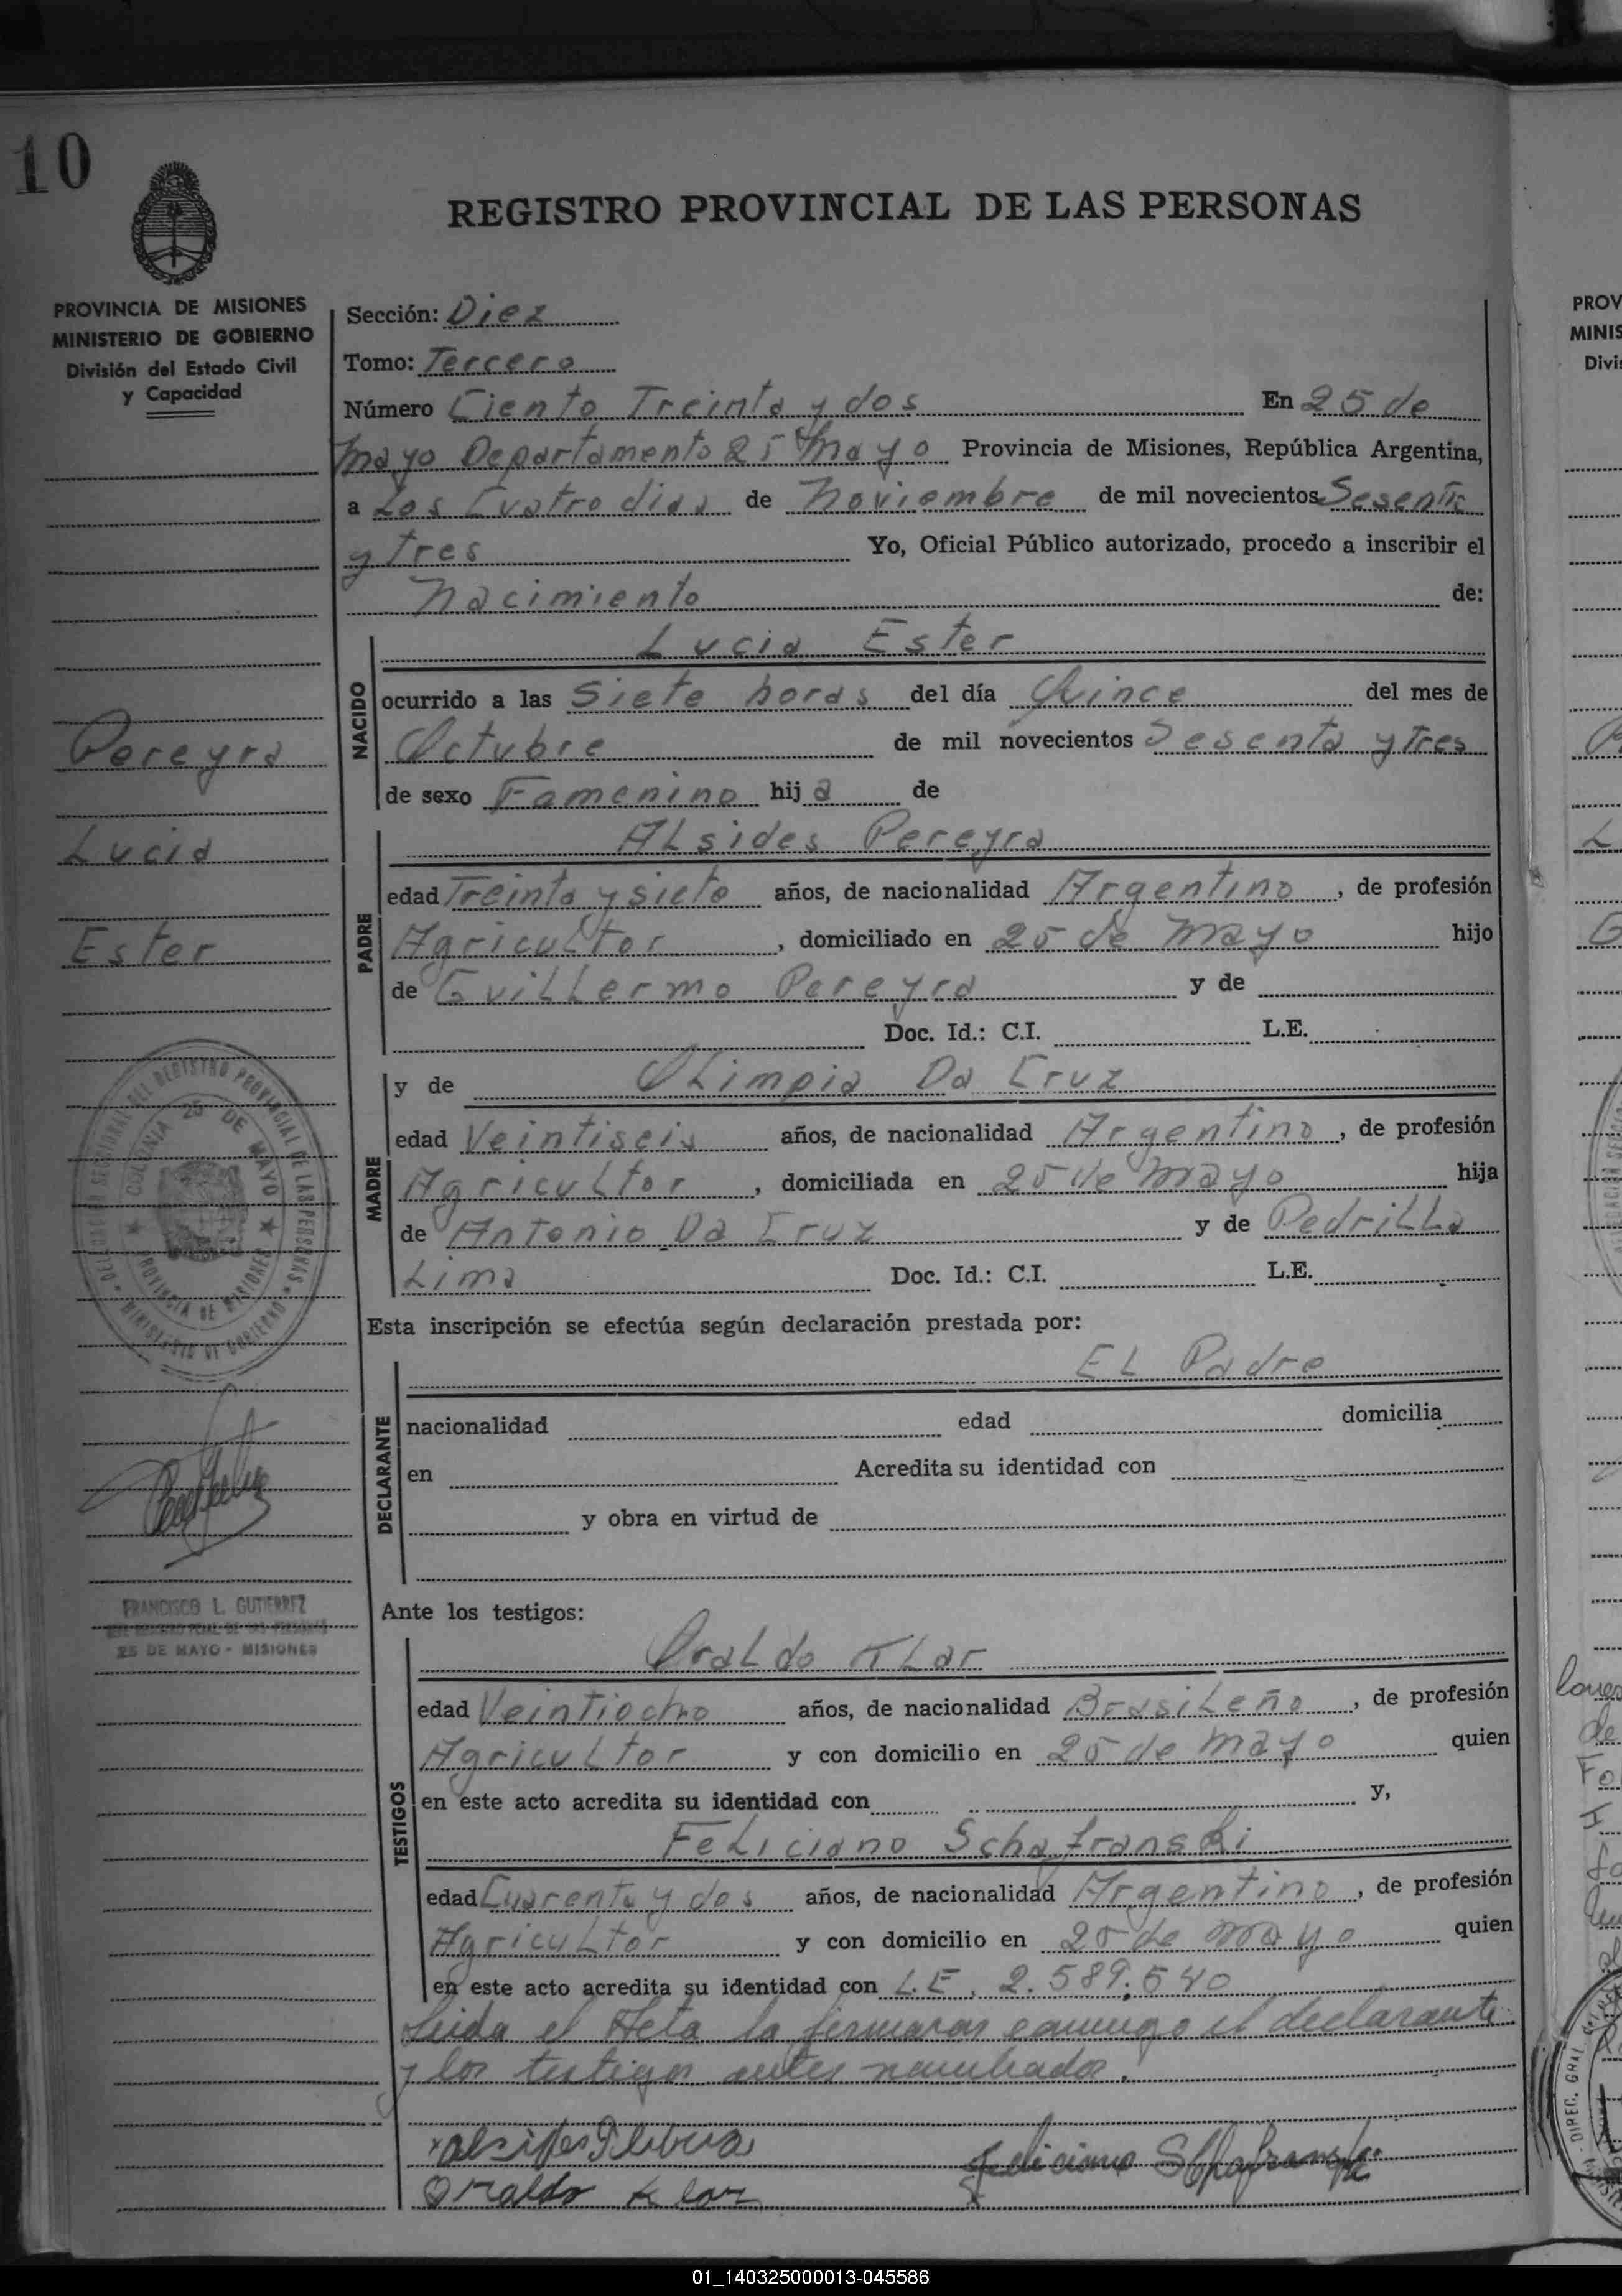 10
REGISTRO PROVINCIAL DE LAS PERSONAS
PROVINCIA DE MISIONES
MINISTERIO DE GOBIERNO
División del Estado Civil
y Capacidad
Sección: Diez
Tomo: Tercero
Número Ciento Treinta y dos En 25 de
Mayo Departamento 25 Mayo Provincia de Misiones, República Argentina,
a Los Cuatro dias de Noviembre de mil novecientos Sesenta
y Tres Yo, Oficial Público autorizado, procedo a inscribir el
Nacimiento de:
NACIDO
Lucia Ester
ocurrido a las Siete horas del día Quince del mes de
Octubre de mil novecientos Sesenta y Tres
de sexo Famenino hija de
Pereyra
Lucia
Ester
PADRE
ALsides Pereyra
edad Treinta y siete años, de nacionalidad Argentino, de profesión
Agricultor, domiciliado en 25 de Mayo hijo
de GuiLLermo Pereyra y de
Doc. Id.: C.I. L.E.
MADRE
y de OLimpia Da Cruz
edad Veintiseis años, de nacionalidad Argentino, de profesión
Agricultor, domiciliada en 25 de Mayo hija
de Antonio Da Cruz y de PedriLLa
Lima Doc. Id.: C.I. L.E.
DELEGACION SECCIONAL DEL REGISTRO PROVINCIAL DE LAS PERSONAS
MINISTERIO DE GOBIERNO
COLONIA 25 DE MAYO
PROVINCIA DE MISIONES
Esta inscripción se efectúa según declaración prestada por:
DECLARANTE
EL Padre
nacionalidad edad domicilia
en Acredita su identidad con
y obra en virtud de
FRANCISCO L. GUTIERREZ
25 DE MAYO - MISIONES
Ante los testigos:
TESTIGOS
Oraldo KLar
edad Veintiocho años, de nacionalidad BrasiLeño, de profesión
Agricultor y con domicilio en 25 de Mayo quien
en este acto acredita su identidad con y,
FeLiciano Schafranski
edad Cuarenta y dos años, de nacionalidad Argentino, de profesión
Agricultor y con domicilio en 25 de Mayo quien
en este acto acredita su identidad con L.E. 2.589.540
Leida el Acta la firmaron conmigo el declarante
y los testigos antes nombrados.
Alsides
Oraldo Klar
Feliciano Schafranski
PROV
MINIS
Divi
DIREC. GRAL
01_140325000013-045586